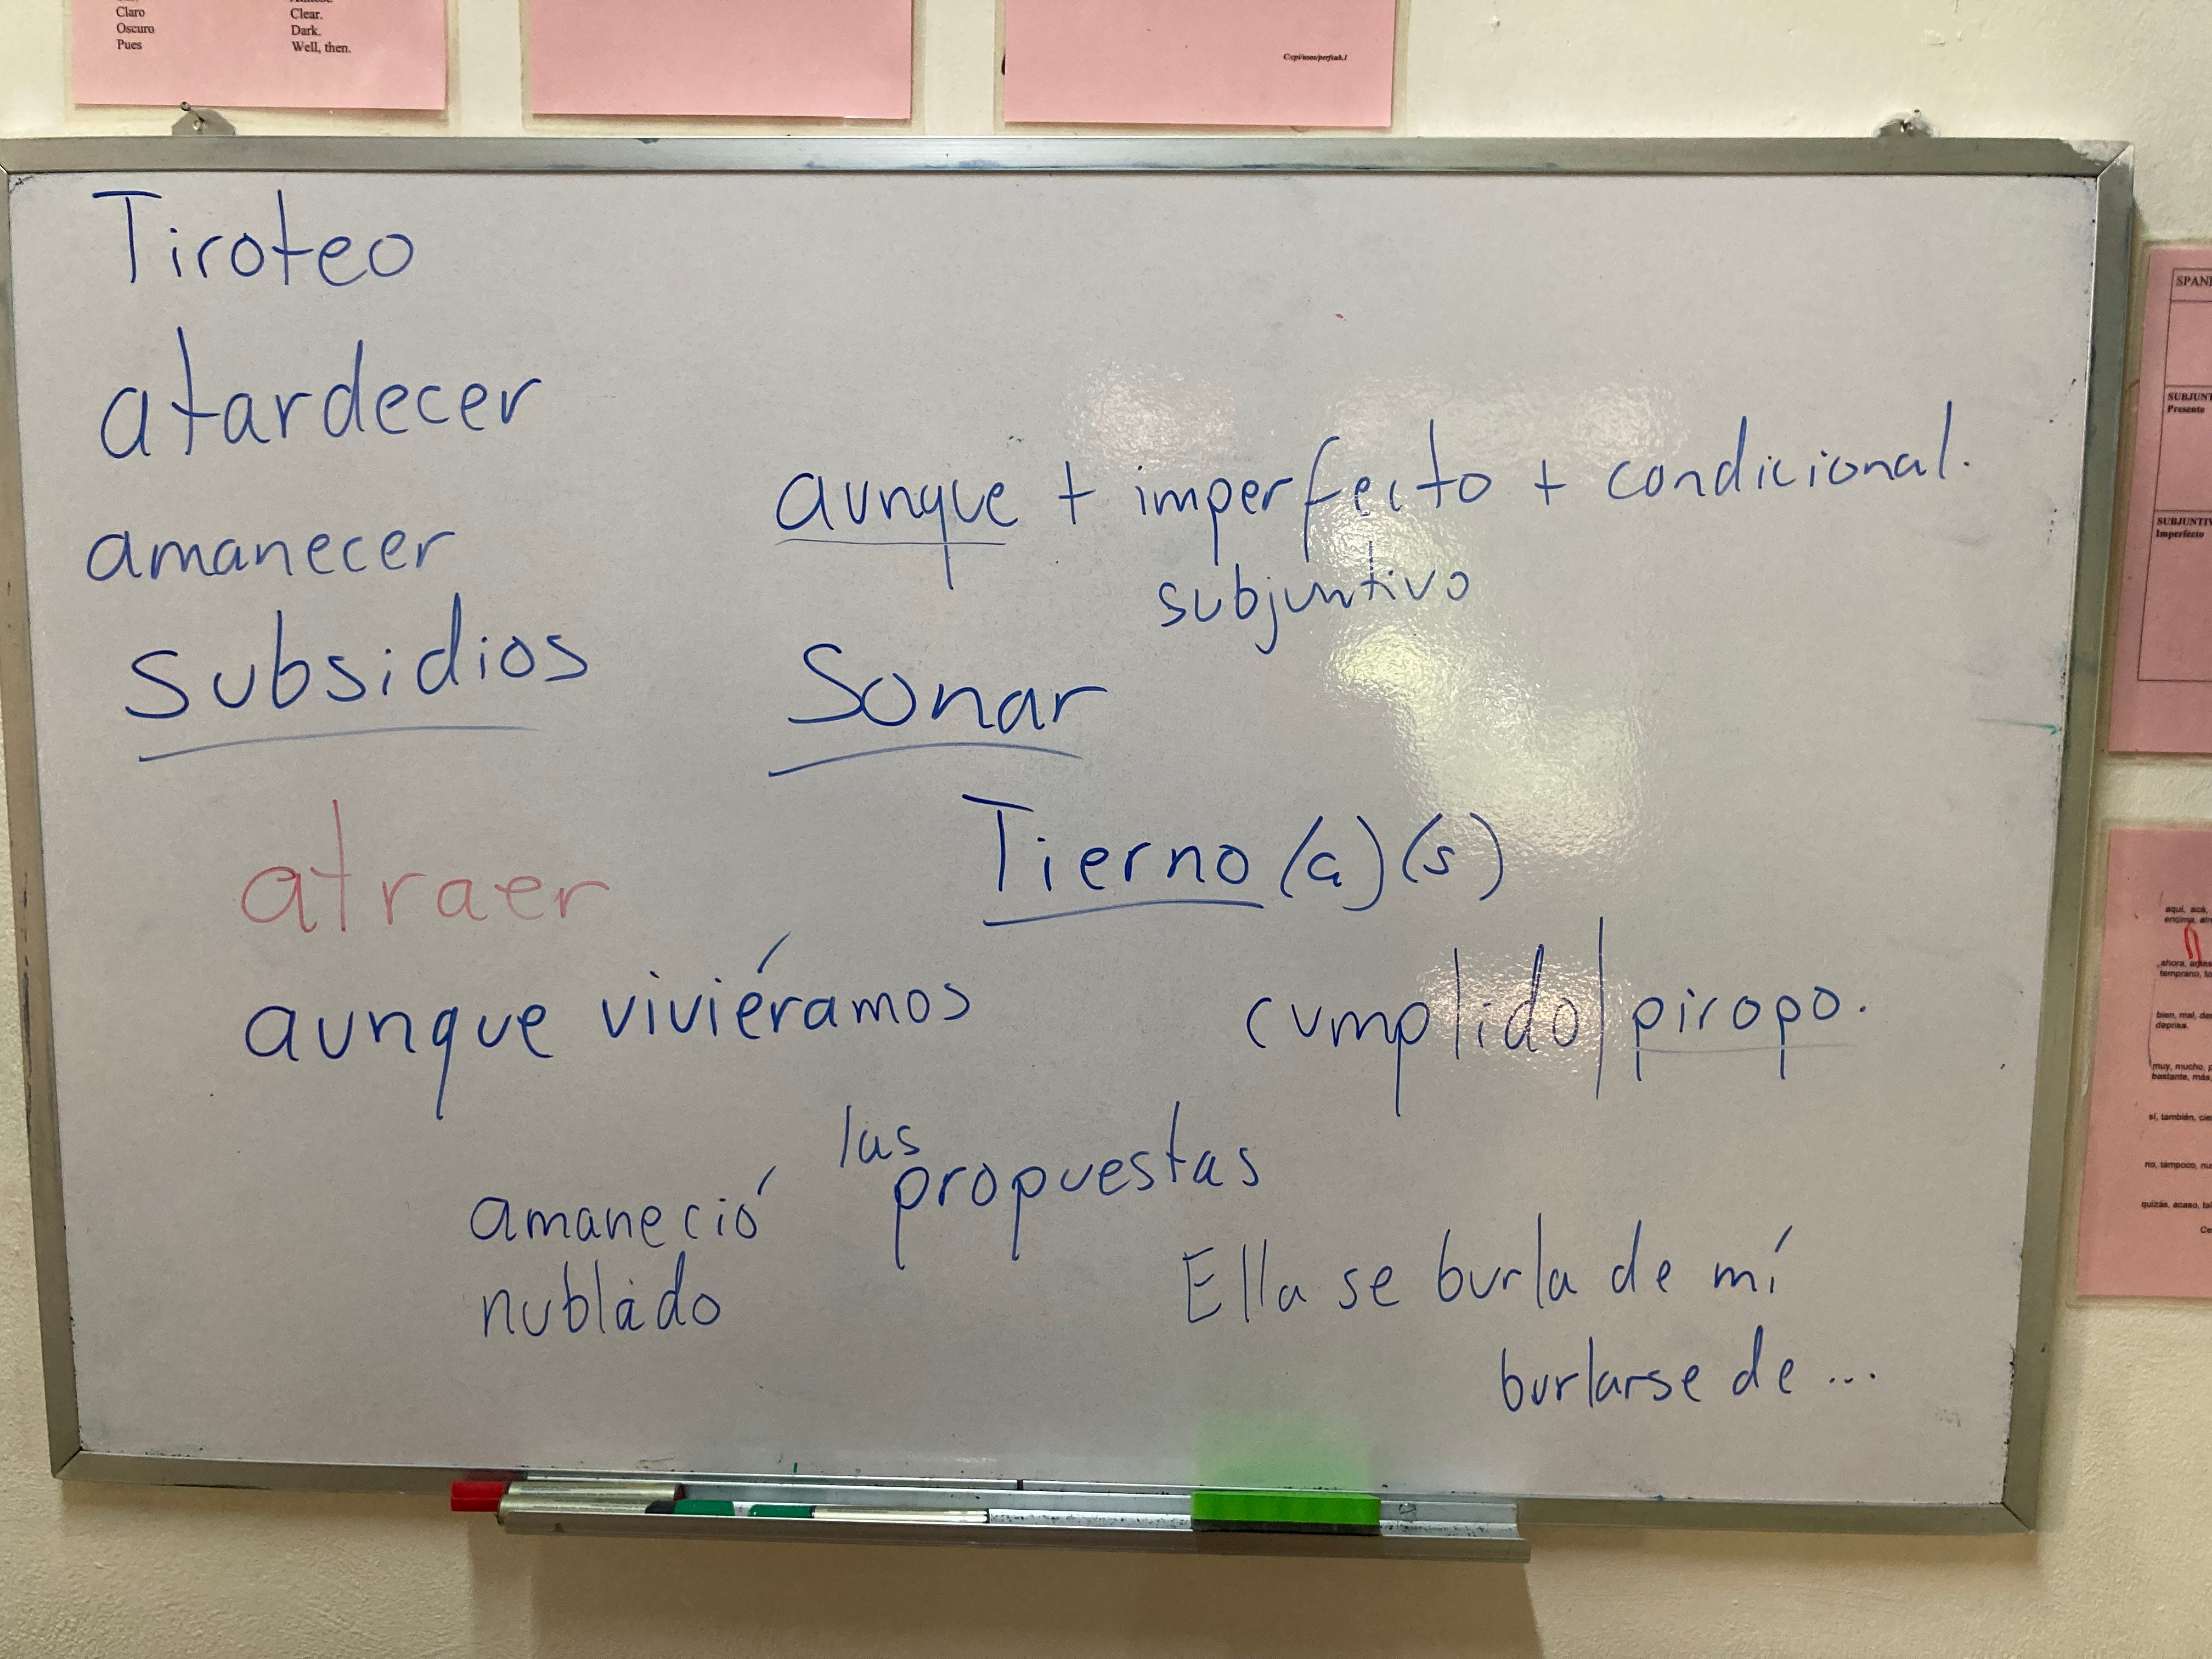 Claro Clear.
Oscuro Dark.
Pues Well, then.
C:cpi/usos/perfsub.1
Tiroteo
atardecer
amanecer
subsidios
aunque + imperfecto + condicional.
subjuntivo
Sonar
atraer
Tierno (a) (s)
aunque viviéramos
cumplido | piropo.
las
propuestas
amaneció
nublado
Ella se burla de mí
burlarse de ...
Presente
Imperfecto
aquí, acá,
encima,
ahora,
temprano,
bien, mal,
deprisa.
muy, mucho,
bastante, más,
sí, también,
no, tampoco,
quizás, acaso,